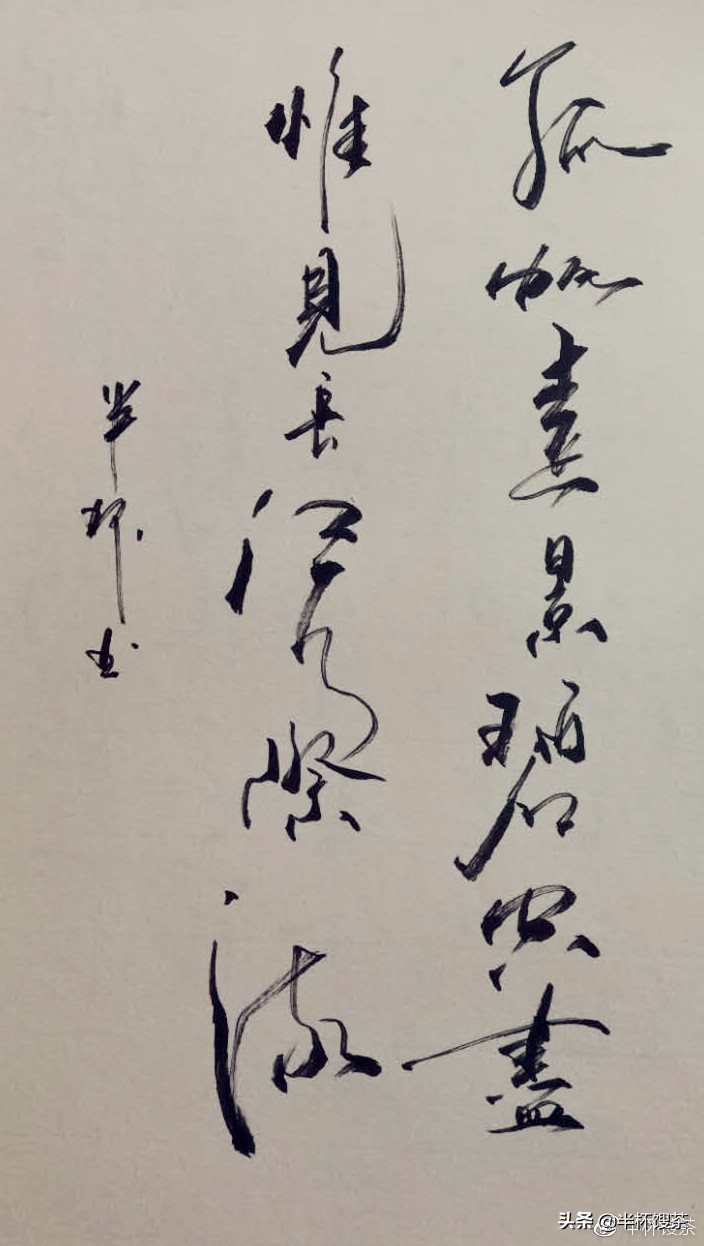 孤帆遠景碧空盡
惟見長江天際流
半杯书
头条 @半杯馊茶